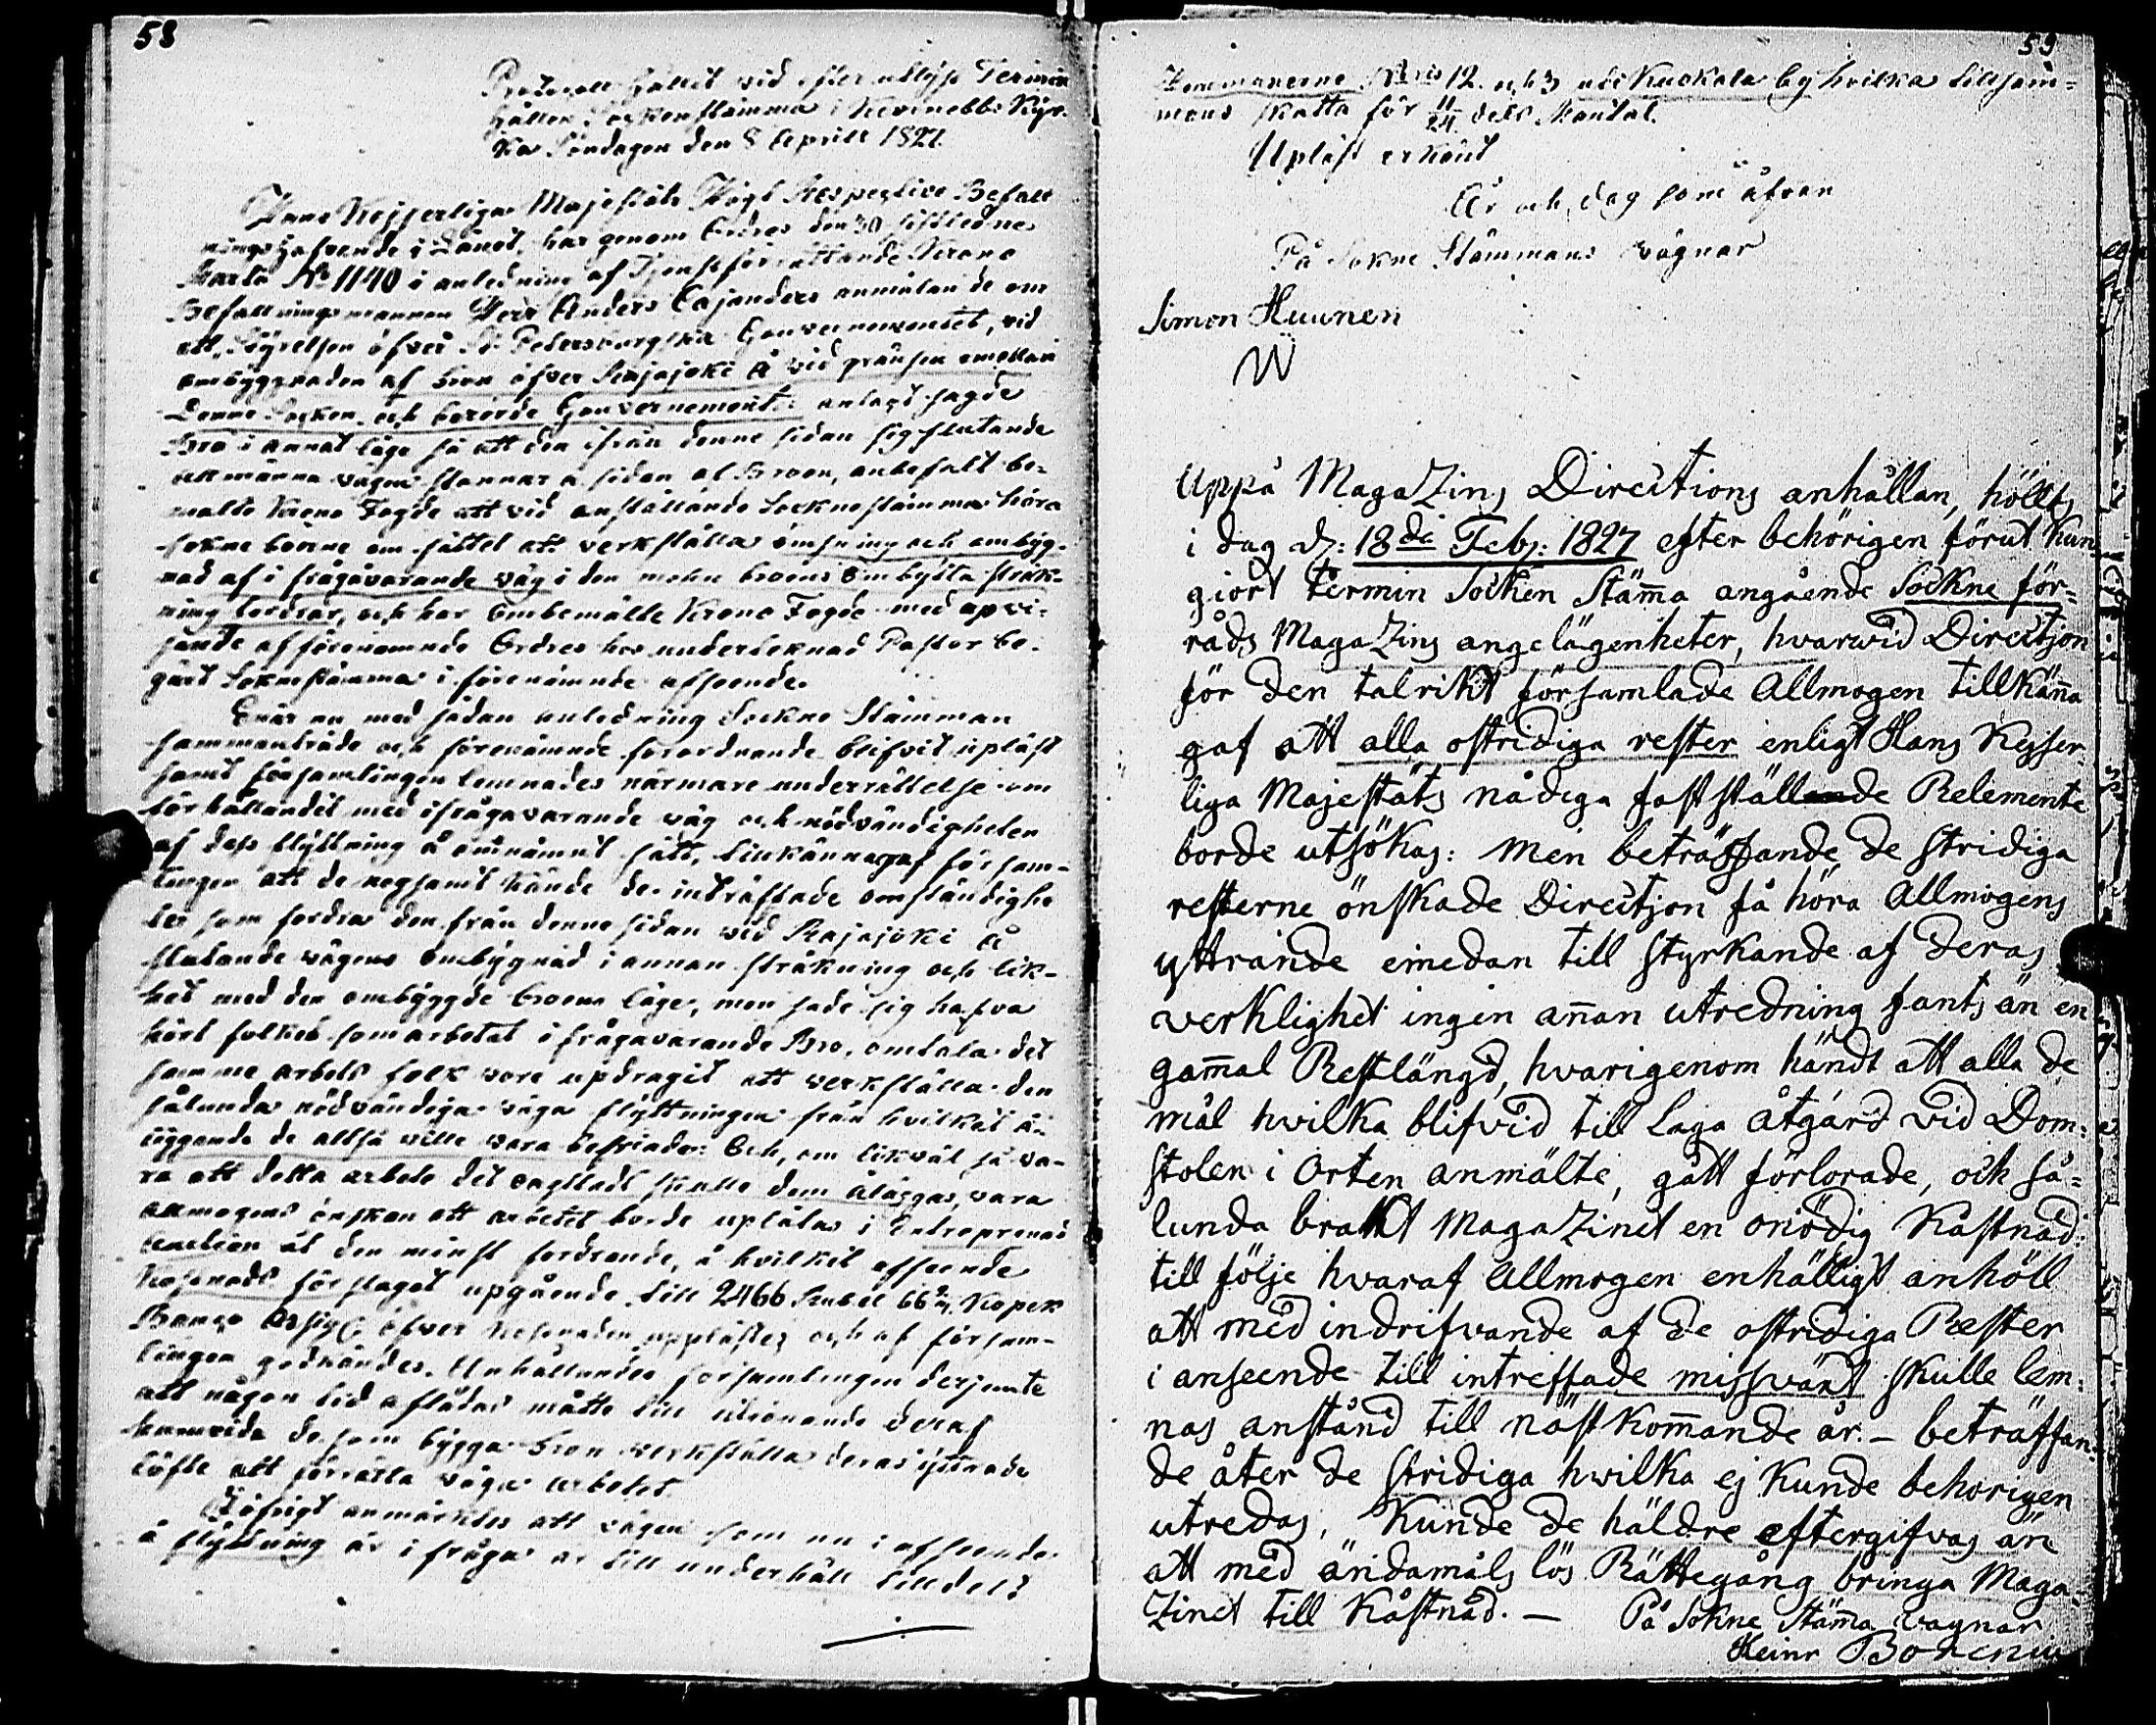 58
Protocoll hållit vid efter utlyst Termin
hållen Sockenstämma i Kivinebb Kyr-
ka Söndagen den 8 Aprill 1827.
Hans Kejserliga Majestäts Högt Respective Befall
ningshafvande i Länet, har genom Ordres den 30 sistledne
Martii No 1140 i anledning af Tjensteförrättande Krono
Befallningsmannen Herr Anders Cajanders anmälande om
att, Styrelsen öfver St Petersburgska Gouvernementet, vid
ombyggnaden af bron öfver Rajajoki Å vid gränsen emellan
Denne Socken och berörde Gouvernement: anlagt sagde
Bro i annat läge så att den ifrån denne sidan sig slutande
allmänna vägen stannar å sidan af Broen, anbefalt be-
mälte Krono Fogde att vid anställande Socknestämma höra
Sokne boerne om sättet att verkställa omsning och ombyg-
nad af i frågavarande väg i den moten broens ombytta sträk-
ning fordrar, och har Ombemälte Krono Fogde med upvi-
sande af förenämnde Ordres hos underteknad Pastor be-
gärt Soknestämma i förenämnde afseende.
Enär nu med sådan anledning Sockne Stämman
sammanträdde och förenämnde förordnande blifvit upläst
samt församlingen lemnades närmare underrättelse om
förhållandet med ifrågavarande väg och nödvändigheten
af dess flyttning å omnämnt sätt, tillkännagaf försam-
lingen att de nogsamt kände de inträffade omständighe
ter som fordra den från denne sidan vid Rajajoki Å
slutande vägens ombygnad i annan sträkning och lik-
het med den ombyggde broens läge, men sade sig hafva
hört folket som arbetat i frågavarande Bro, omtala det
samme arbets folk vore updragit att verkställa den
sålunda nödvändiga väga flyttningen från hvilket å-
liggande de altså ville vara befriade: Och, om likväl så va-
ra att detta arbete det oagtadt skulle dem åläggas, vara
allmogens önskan att arbetet borde uplåtas i Entreprenad
auction åt den minst fordrande, å hvilket afseende
Kostnads förslaget upgående till 2466 Rubel 66 2/7 Kopek
Banco Assign: öfver kostnaden upplästes och af försam-
lingen godkändes. Anhållandes församlingen derjemte
att någon tid afstådas måtte till utrönande deraf
huruvida de som bygga bron verkställa deras yttrade
löfte att förrätta väga arbetet.
Iöfrigt anmärktes att vägen som nu i afseende
å flyttning är i fråga är till underhåll tilldelt
59
Hemmanerne Nris 12. och 3 uti Kuokala by hvilka tillsam-
mans skatta för 11/24 dels Mantal.
Upläst erkänt
År och dag som åfvan
På Sokne Stämmans vägnar
Simon Huunen
W
Uppå MagaZins Directions anhållan, hölts
i dag d: 18de Feb: 1827 efter behörigen förut kun
giort termin Socken Stäm̅a angående Sockne för-
råds MagaZins angelägenheter, hvarvid Directjon
för den talrikt församlade Allmogen tillkän̅a
gaf att alla ostridiga rester enligt Hans Kejser-
liga Majestäts nådiga fastställande Relemente
borde utsökas: Men beträffande de stridiga
resterne önskade Directjon få höra Allmogens
yttrande emedan till styrkande af deras
verklighet ingen an̅an utredning fants än en
gam̅al Restlängd, hvarigenom händt att alla de
mål hvilka blifvid till Laga åtgärd vid Dom-
stolen i Orten anmälte, gått förlorade, och så-
lunda brakt MagaZinet en onödig Kåstnad:
till följe hvaraf Allmogen enhälligt anhöll
att med indrifvande af de ostridiga Rester
i anseende till intreffade missvänt skulle lem-
nas anstånd till nästkom̅ande år. – beträffan-
de åter de stridiga hvilka ej kunde behörigen
utredas, kunde de häldre eftergifvas än
att med ändamåls lös Rättegång bringa Maga-
Zinet till Kåstnad. – På Sokne Stäm̅a vägnar
Heinr Borenius